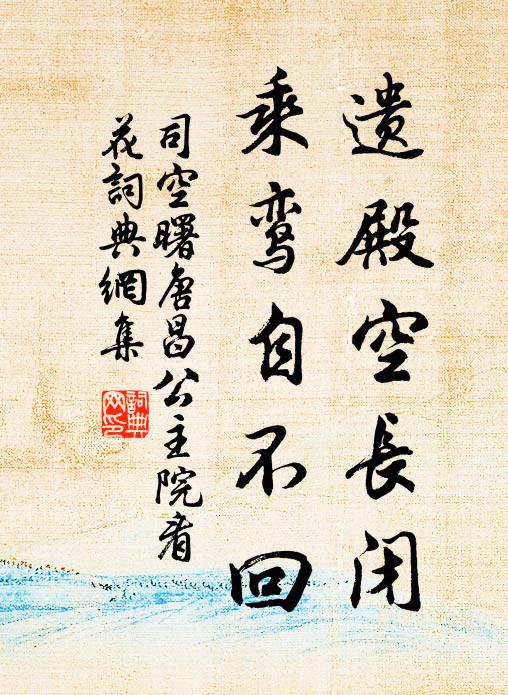 遗殿空長闭
乘鸾自不回
司空曙唐昌公主院看
花詞典網集
詞典
网印